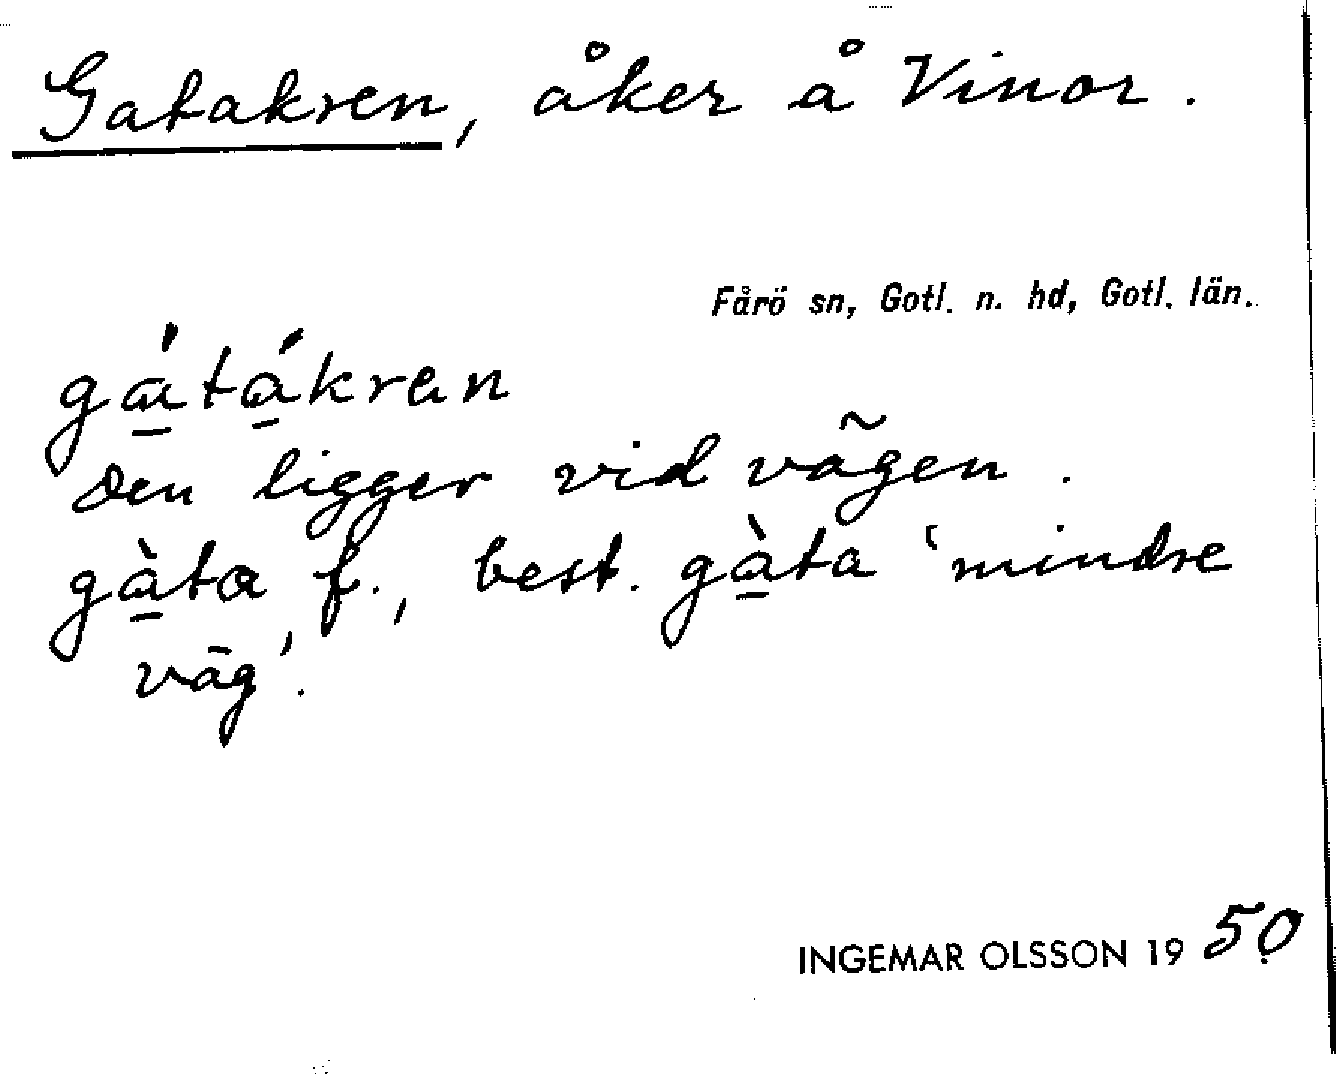 Gatakren, åker å Vinor.
Fårö sn, Gotl. n. hd, Gotl. län.
gá̱tá̱kran
Den ligger vid vägen.
gà̱ta f., best. gà̱ta 'mindre
väg'.
INGEMAR OLSSON 1950